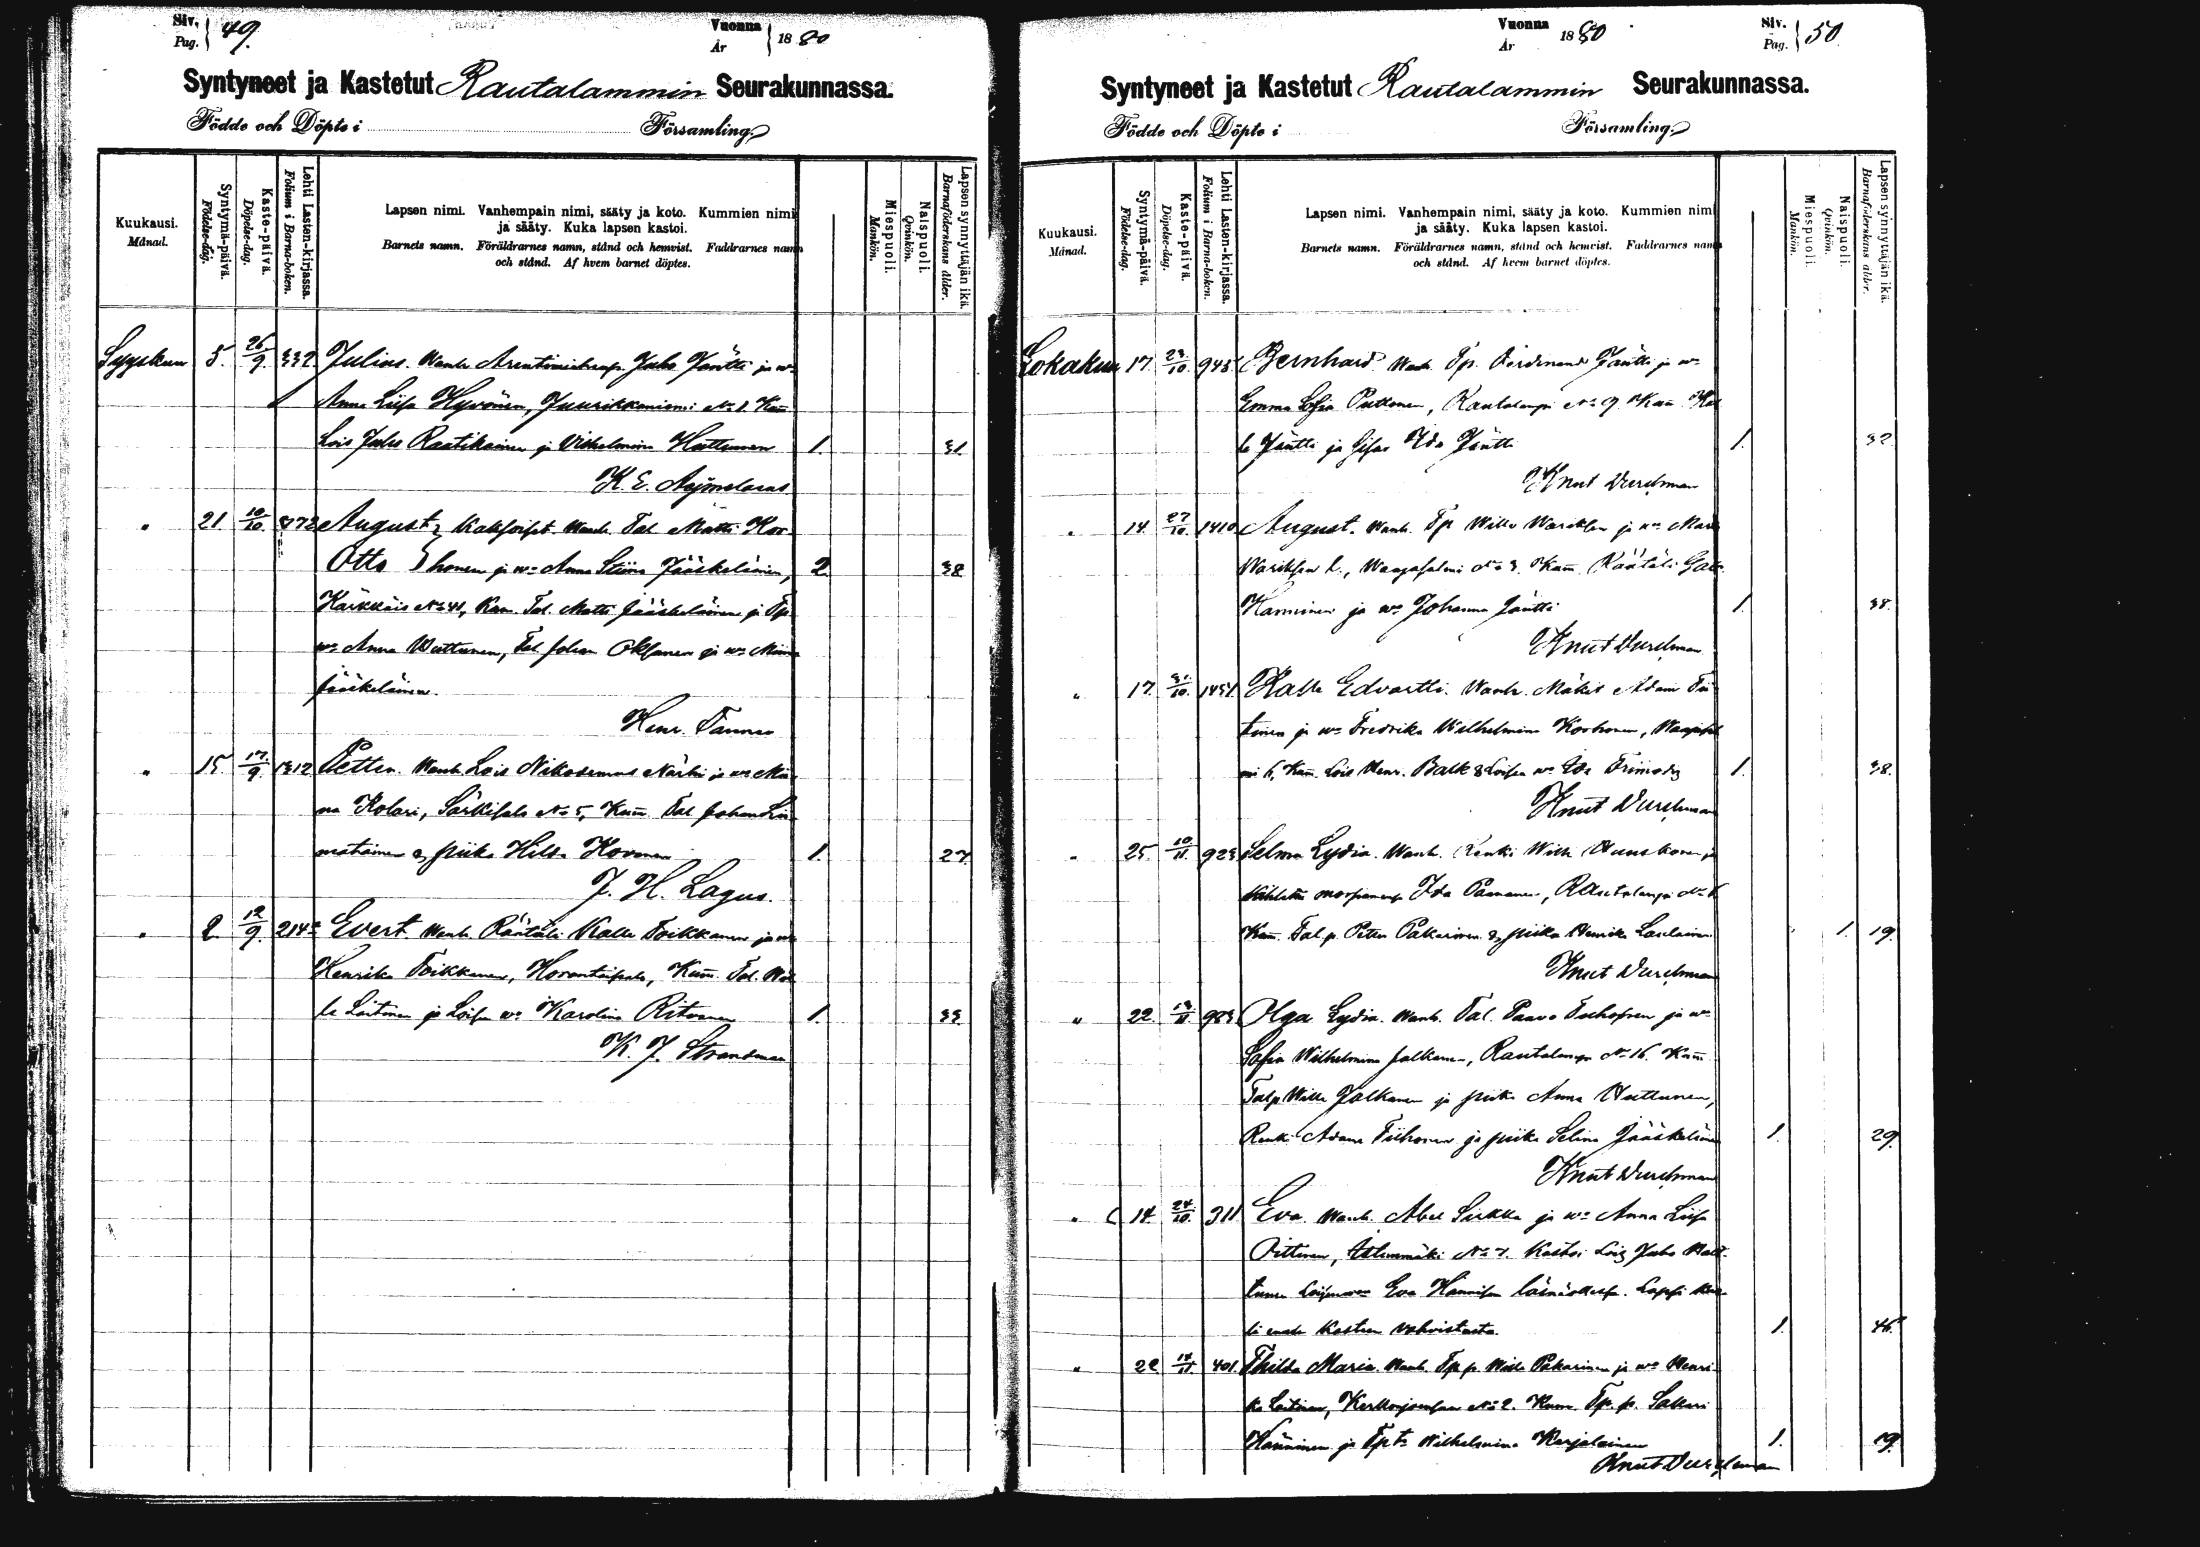 Siv. Pag. 49. Vuonna År 1880
Syntyneet ja Kastetut Rautalammin Seurakunnassa.
Födde och Döpte i Församling.
Kuukausi. Månad.
Syntymä-päivä. Födelse-dag.
Kaste-päivä. Döpelse-dag.
Lehti Lasten-kirjassa. Folium i Barna-boken.
Lapsen nimi. Vanhempain nimi, sääty ja koto. Kummien nimi
ja sääty. Kuka lapsen kastoi.
Barnets namn. Föräldrarnes namn, stånd och hemvist. Faddrarnes namn
och stånd. Af hvem barnet döptes.
Miespuoli. Mankön.
Naispuoli. Qvinkön.
Lapsen synnyttäjän ikä. Barnaföderskans ålder.
Syyskuu 5. 26/9. 332. Julius. Wanh. Juho Jäntti ja wo
Anna Liisa Hyvönen, Juurikkaniemi No 1. Kum
Lois Juho Raatikainen ja Vilhelmina Huttunen 1. 31.
K. E.
" 21 10/10. August & kaksoiset. Wanh. Tal Matti Kor-
Otto honen ja wo Anna Stiina Jääskeläinen, 2. 38
Kärkkäis No 41, Kum. Tal. Matti Jääskeläinen ja Tp.
wo Anna Wuttunen, Tal Johan Oksanen ja wo Minna
Jääskeläinen.
Henr.
" 15 17/9. 1312 Petter. Wanh. Lois Nikodemus Närhi ja wo Min-
na Kolari, Särkisalo No 5, Kum. Tal Johan Lii-
matainen & piika Hilda Kovanen 1. 27.
J. H. Lagus.
" 2. 12/9. Evert. Wanh. Räätäli Kalle Toikkanen ja wo
Henrika Toikkanen, Kum. Tal. Wil
le Laitinen ja Loisen wo Karolina Ritvanen 1. 33
K. J. Strandman
Vuonna År 1880 Siv. Pag. 50.
Syntyneet ja Kastetut Rautalammin Seurakunnassa.
Födde och Döpte i Församling.
Kuukausi. Månad.
Syntymä-päivä. Födelse-dag.
Kaste-päivä. Döpelse-dag.
Lehti Lasten-kirjassa. Folium i Barna-boken.
Lapsen nimi. Vanhempain nimi, sääty ja koto. Kummien nimi
ja sääty. Kuka lapsen kastoi.
Barnets namn. Föräldrarnes namn, stånd och hemvist. Faddrarnes namn
och stånd. Af hvem barnet döptes.
Miespuoli. Mankön.
Naispuoli. Qvinkön.
Lapsen synnyttäjän ikä. Barnaföderskans ålder.
Lokakuu 17. 945 Bernhard. Wanh. Tp. Ferdinand Jäntti ja wo
Emma Sofia Puttonen, Rautalampi No 9. Kum. Kal
le Jäntti ja Ida Jäntti 1. 32.
Knut Durchman
" 14. 27/10. 1410 August. Wanh. Tp Wille ja wo Maria
No 3. Kum. Räätäli
Hänninen ja wo Johanna Jäntti 1. 38.
Knut Durchman
" 17. 31/10. 1451. Kalle Edvartti. Wanh. Mäkit. Adam Tii
tinen ja wo Fredrika Wilhelmina Korhonen,
6, Kum. Lois Henr. Balk & Loisen wo Ida 1. 38.
Knut Durchman
" 25. 10/11. 923 Selma Lydia. Wanh. Renki Wille Huuskonen ja
Ida Paananen, Rautalampi No 6
Kum. Tal.p. Petter Pakarinen & piika Henrika 1. 19.
Knut Durchman
" 22. 983 Olga Lydia. Wanh. Tal. Paavo ja wo
Sofia Wilhelmina Jalkanen, Rautalampi No 16. Kum.
Tal.p. Wille Jalkanen ja piika Anna Huttunen,
Renki Adam Tiihonen ja piika Selina Jääskeläinen 1. 29.
Knut Durchman
" 14. 24/10. 311 Eva. Wanh. Abel Sirkka ja wo Anna Liisa
Oittinen, No 7. Kastoi Lois Juho
Loisen wo Eva Hänninen läsnäollessa.
kasteen vahvistusta. 1. 46.
" 22 14/11. 401. Thilda Maria. Wanh. Tp.p. Wille Pakarinen ja wo Henri-
ka Laitinen, No 2. Kum. Tp. p. Sakari
Hänninen ja Tp t. Wilhelmina Karjalainen 1. 19.
Knut Durchman